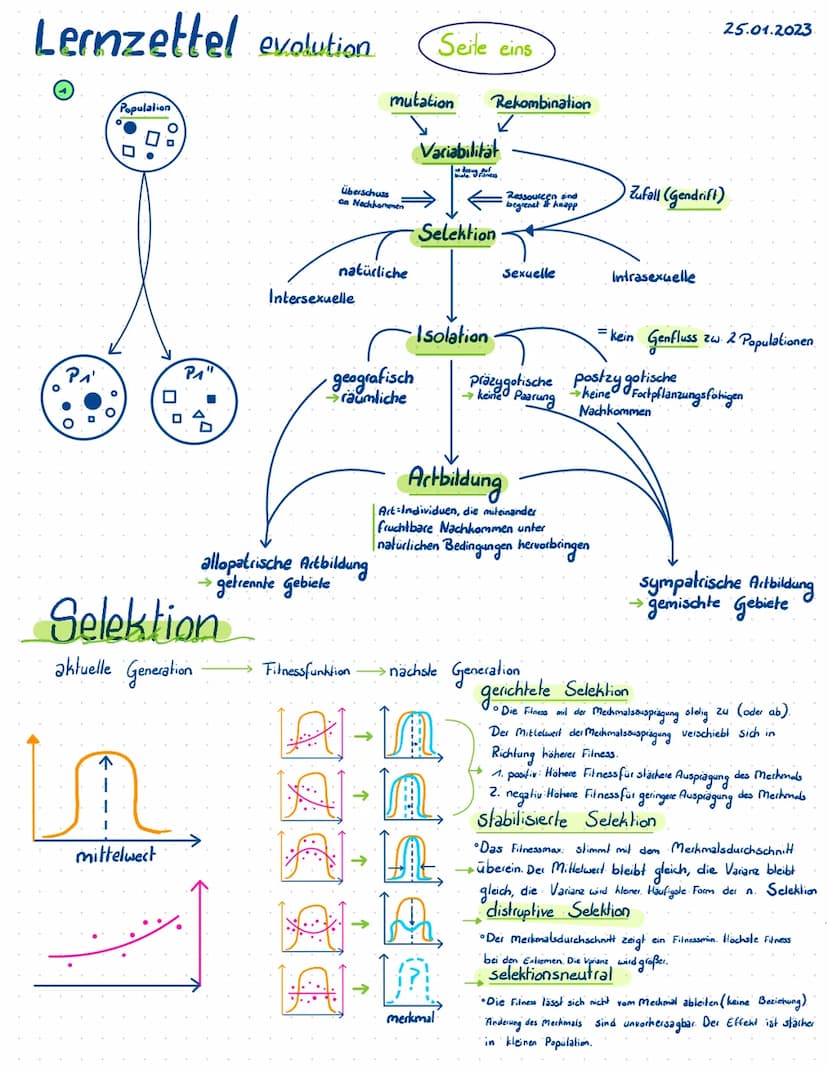 Lernzettel evolution
Seite eins
25.01.2023
1
Population
mutation
Rekombination
Variabilität
Überschuss
an Nachkommen
Ressourcen sind
begrenzt & knapp
Zufall (Gendrift)
Selektion
natürliche
sexuelle
Intersexuelle
Intrasexuelle
Isolation
= kein Genfluss zw. 2 Populationen
P1'
P1"
geografisch
→ räumliche
präzygotische
→ keine Paarung
postzygotische
→ keine Fortpflanzungsfähigen
Nachkommen
Artbildung
Art=Individuen, die miteinander
fruchtbare Nachkommen unter
natürlichen Bedingungen hervorbringen
allopatrische Artbildung
→ getrennte Gebiete
sympatrische Artbildung
→ gemischte Gebiete
Selektion
aktuelle Generation → Fitnessfunktion → nächste Generation
gerichtete Selektion
°Die Fitness mit der Merkmalsausprägung stetig zu (oder ab).
Der Mittelwert der Merkmalsausprägung verschiebt sich in
Richtung höherer Fitness.
1. positiv: Höhere Fitness für stärkere Ausprägung des Merkmals
2. negativ: Höhere Fitness für geringere Ausprägung des Merkmals
mittelwert
stabilisierte Selektion
°Das Fitnessmax. stimmt mit dem Merkmalsdurchschnitt
überein. Der Mittelwert bleibt gleich, die Varianz bleibt
gleich, die Varianz wird kleiner. Häufigste Form der n. Selektion
distruptive Selektion
°Der Merkmalsdurchschnitt zeigt ein Fitnessmin. Höchste Fitness
bei den Extremen. Die Varianz wird größer.
selektionsneutral
?
merkmal
°Die Fitness lässt sich nicht vom Merkmal ableiten (keine Beziehung)
Änderung des Merkmals sind unvorhersagbar. Der Effekt ist stärker
in kleinen Population.